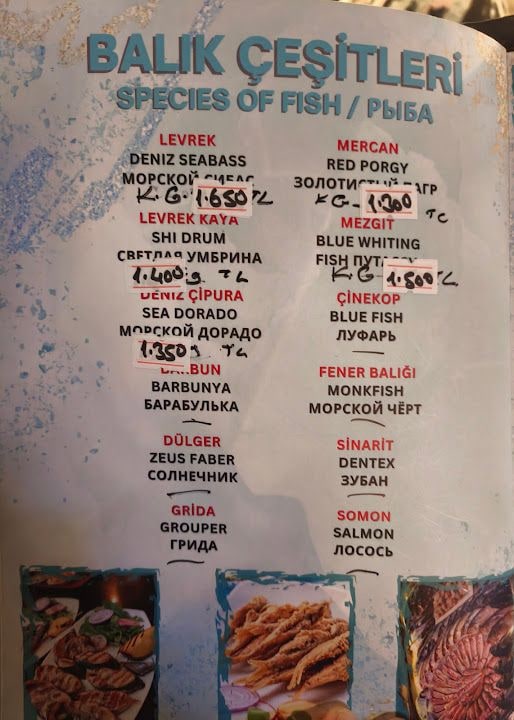 BALIK ÇEŞİTLERİ
SPECIES OF FISH / РЫБА
LEVREK
DENIZ SEABASS
МОРСКОЙ СИБАС
K.G. 1.650 TL
LEVREK KAYA
SHI DRUM
СВЕТЛАЯ УМБРИНА
1.400 TL
DENİZ ÇİPURA
SEA DORADO
МОРСКОЙ ДОРАДО
1.350 TL
BARBUN
BARBUNYA
БАРАБУЛЬКА
DÜLGER
ZEUS FABER
СОЛНЕЧНИК
GRİDA
GROUPER
ГРИДА
MERCAN
RED PORGY
ЗОЛОТИСТЫЙ ПАГР
KG
MEZGIT
BLUE WHITING
FISH ПУТАССУ
K.G 1.500 TL
ÇİNEKOP
BLUE FISH
ЛУФАРЬ
FENER BALIĞI
MONKFISH
МОРСКОЙ ЧЁРТ
SİNARİT
DENTEX
ЗУБАН
SOMON
SALMON
ЛОСОСЬ